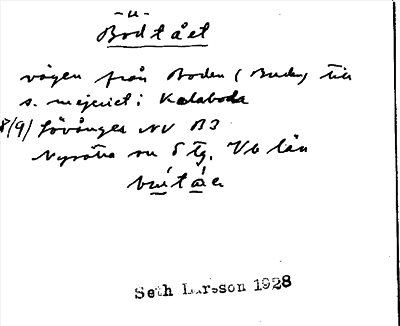 -u-
Bodtået
vägen från Boden (Buden) till
s. mejeriet i Kalaboda
8/9) Lövånger NV B3
Nysätra sn tg. Vb län
Seth Larsson 1928